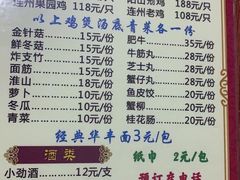 连州果园鸡 118元/只
连州老鸡 168元/只
以上鸡煲汤底青菜各一份
金针菇 15元/份
肥牛 35元/份
鲜冬菇 15元/份
牛筋丸 25元/份
炸支竹 15元/份
芝士丸 25元/份
面筋 15元/份
蟹仔丸 25元/份
淮山 15元/份
鱼皮饺 25元/份
萝卜 10元/份
蟹柳 15元/份
冬瓜 10元/份
桂花肠 20元/份
青菜 10元/份
经典华丰面3元/包
酒类
纸巾 2元/包
小劲酒 12元/支
预订店电话